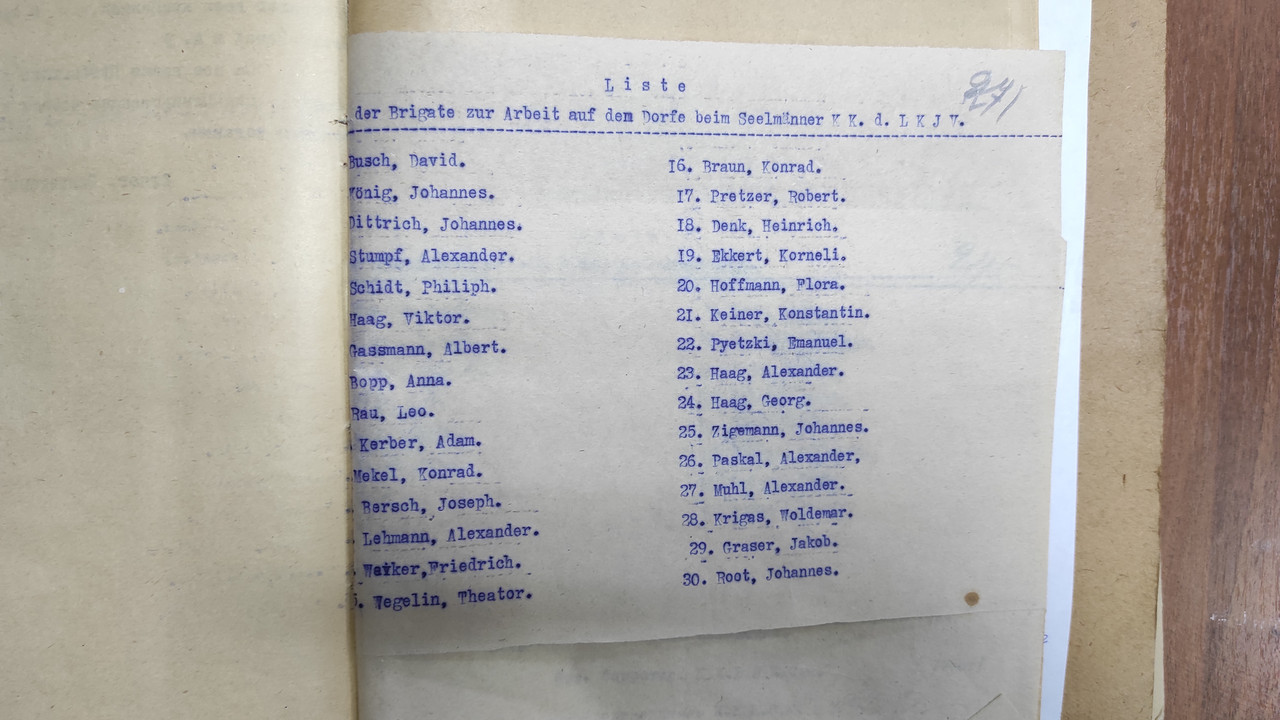 Liste
der Brigate zur Arbeit auf dem Dorfe beim Seelmänner K K. d. L K J V.
Busch, David.
König, Johannes.
Dittrich, Johannes.
Stumpf, Alexander.
Schidt, Philiph.
Haag, Viktor.
Gassmann, Albert.
Bopp, Anna.
Rau, Leo.
Kerber, Adam.
Mekel, Konrad.
Bersch, Joseph.
Lehmann, Alexander.
Friedrich.
Wegelin, Theator.
16. Braun, Konrad.
17. Pretzer, Robert.
18. Denk, Heinrich.
19. Ekkert, Korneli.
20. Hoffmann, Flora.
21. Keiner, Konstantin.
22. Pyetzki, Emanuel.
23. Haag, Alexander.
24. Haag, Georg.
25. Zigemann, Johannes.
26. Paskal, Alexander,
27. Muhl, Alexander.
28. Krigas, Woldemar.
29. Graser, Jakob.
30. Root, Johannes.